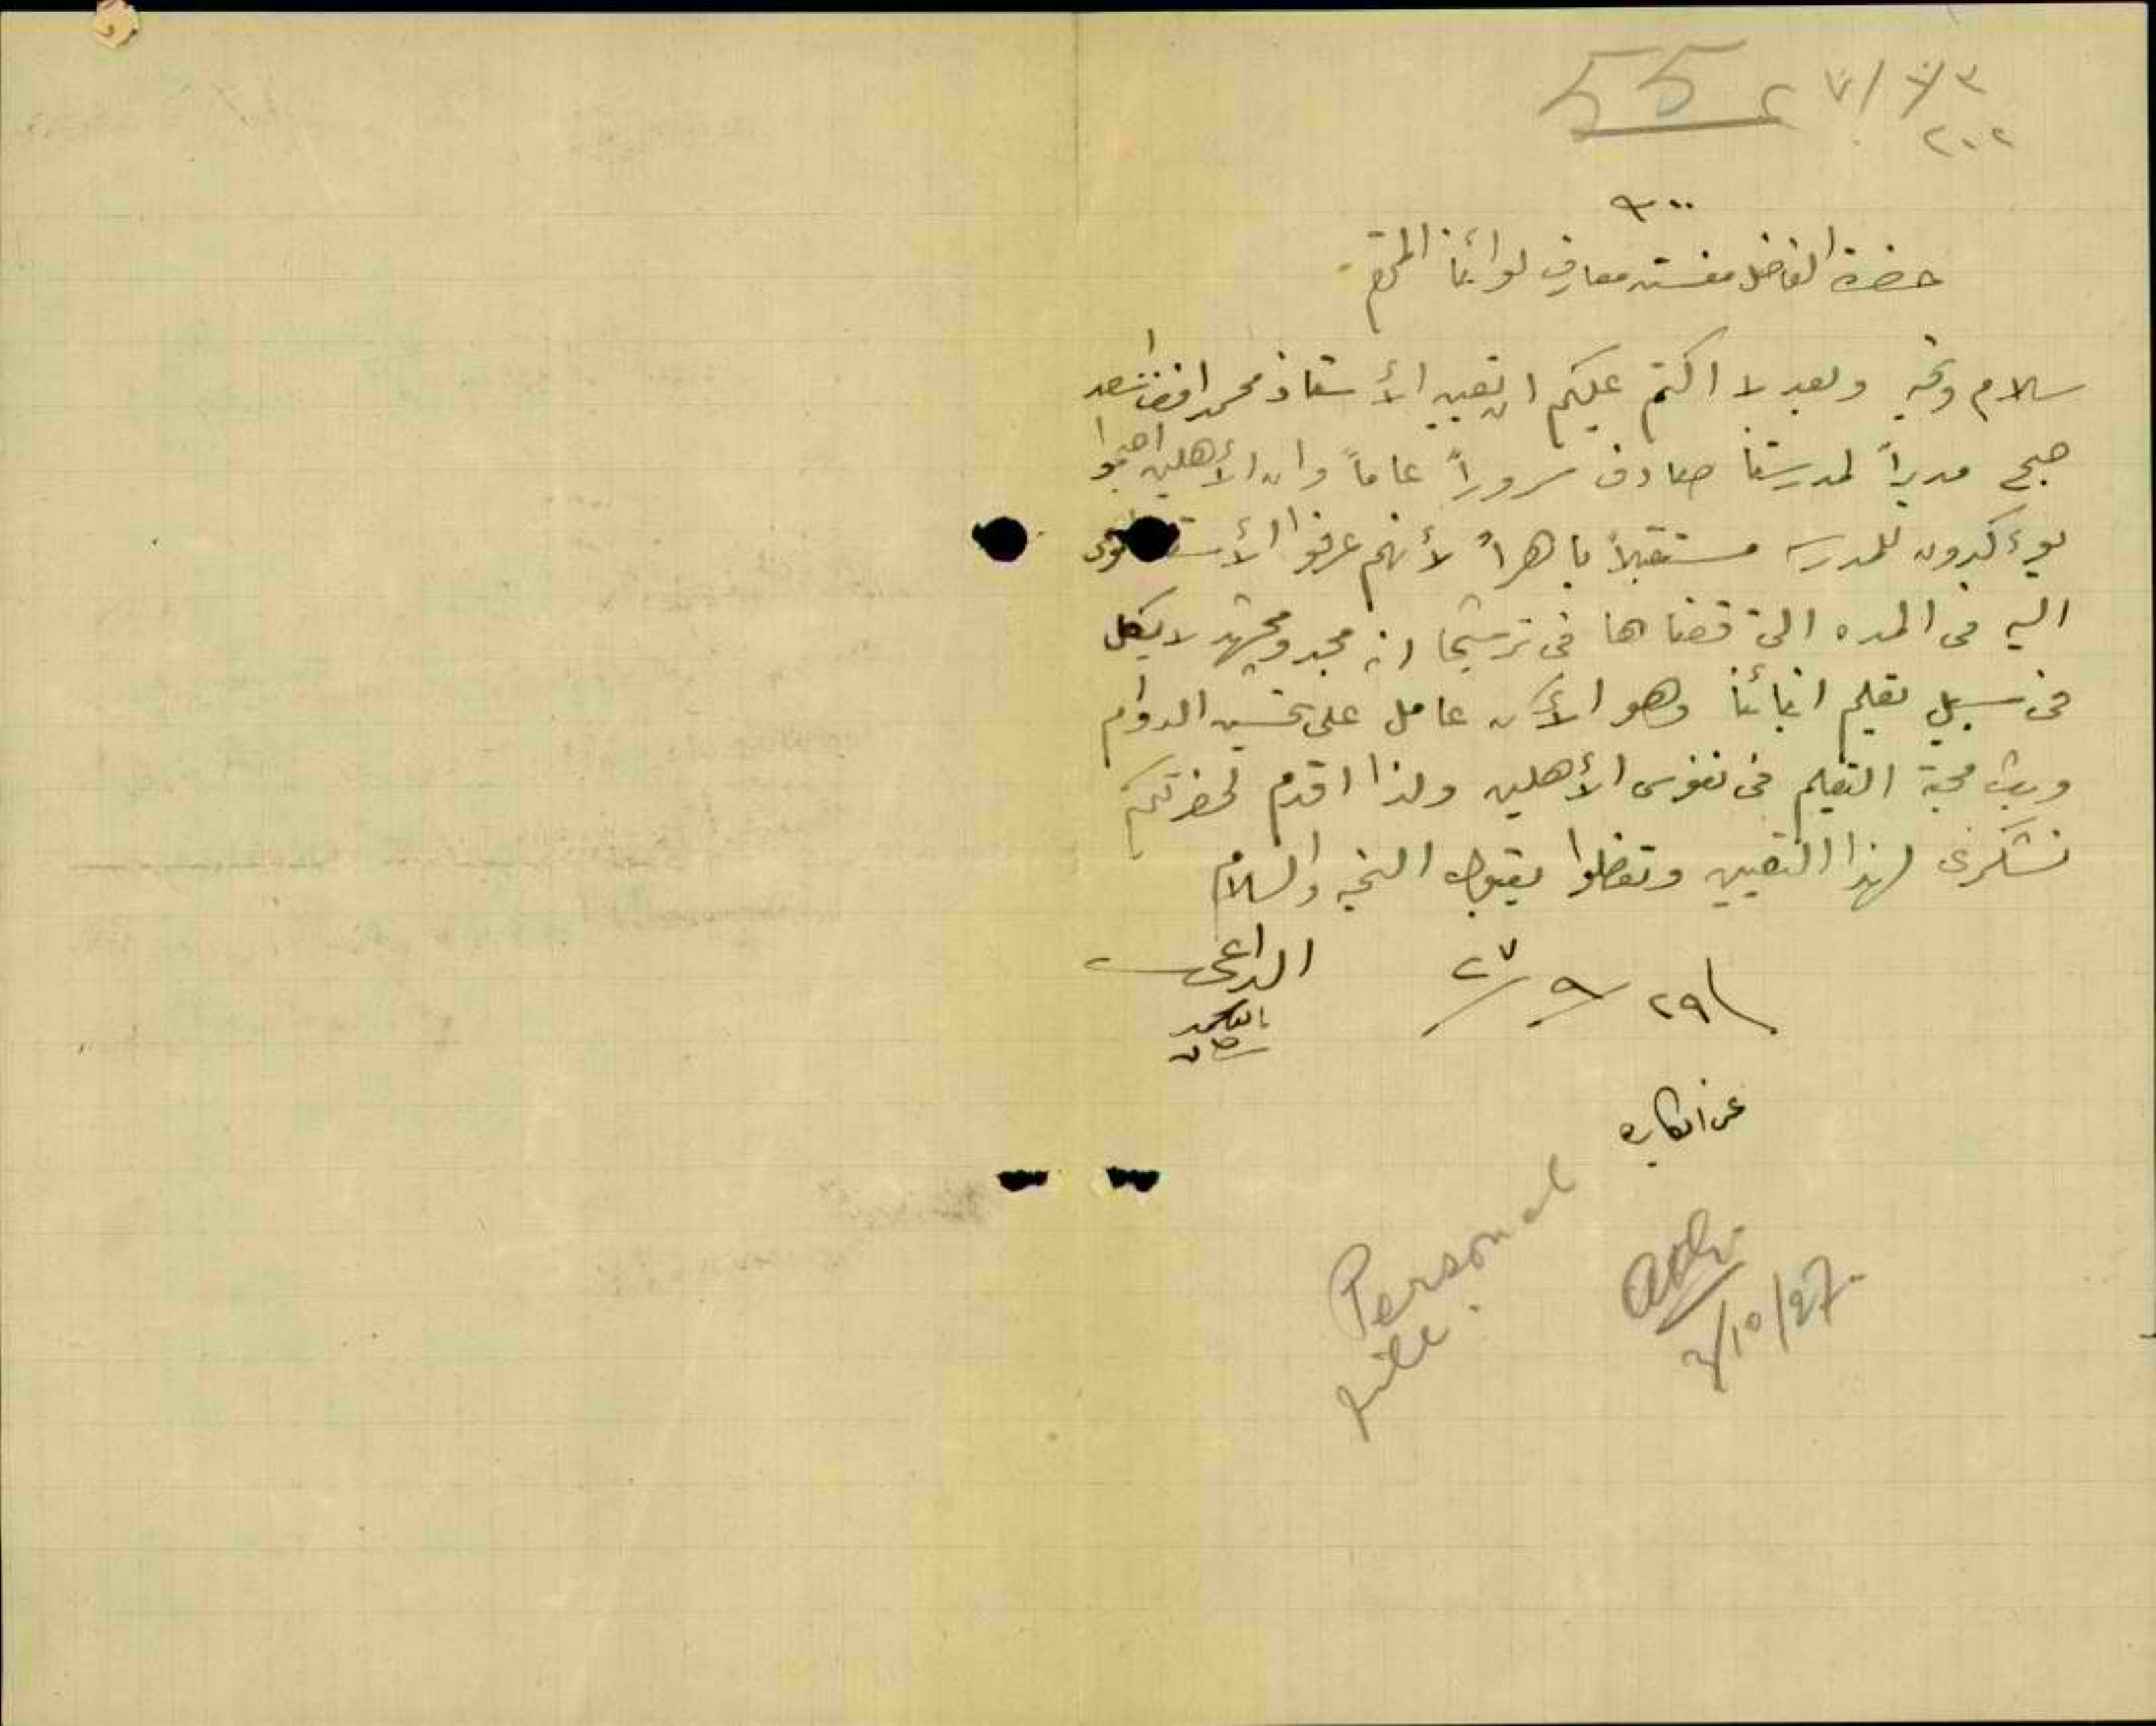 55
٢٠٢
حضرة الفاضل مفتش معارف لوائنا المحترم
سلام وتحية وبعد لا اكتم عليكم ان تعيين الأستاذ محمد افندي اسعد
مديراً لمدرستنا صادف سروراً عاماً وان الأهلين
يؤكدون للمدرسه مستقبلاً باهراً لأنهم عرفوا
اليه في المده التي قضاها في ترشيحا انه مجد ومجتهد لا يكل
في سبيل تعليم ابنائنا وهو الآن عامل على تحسين الدوام
وبث محبة التعليم في نفوس الأهلين ولذا اقدم لحضرتكم
تشكري لهذا التعيين وتفضلوا بقبول التحيه والسلام
٢٩/٩/٢٧ الداعي
Personal
file.
3/10/27.